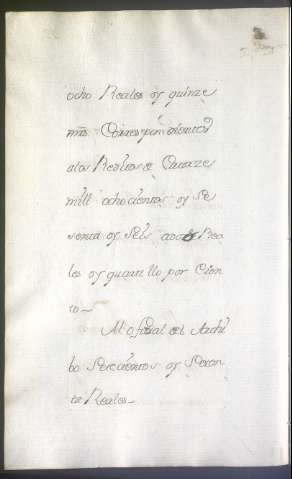 ocho Reales y quinze
mrs. Correspondientes
a los Reditos de Catorze
mill ochocientos y Se
senta y Seis Rea
les y quartillo por Cien
to
Al ofizial del Archi
bo Setecientos y Seten
ta Reales